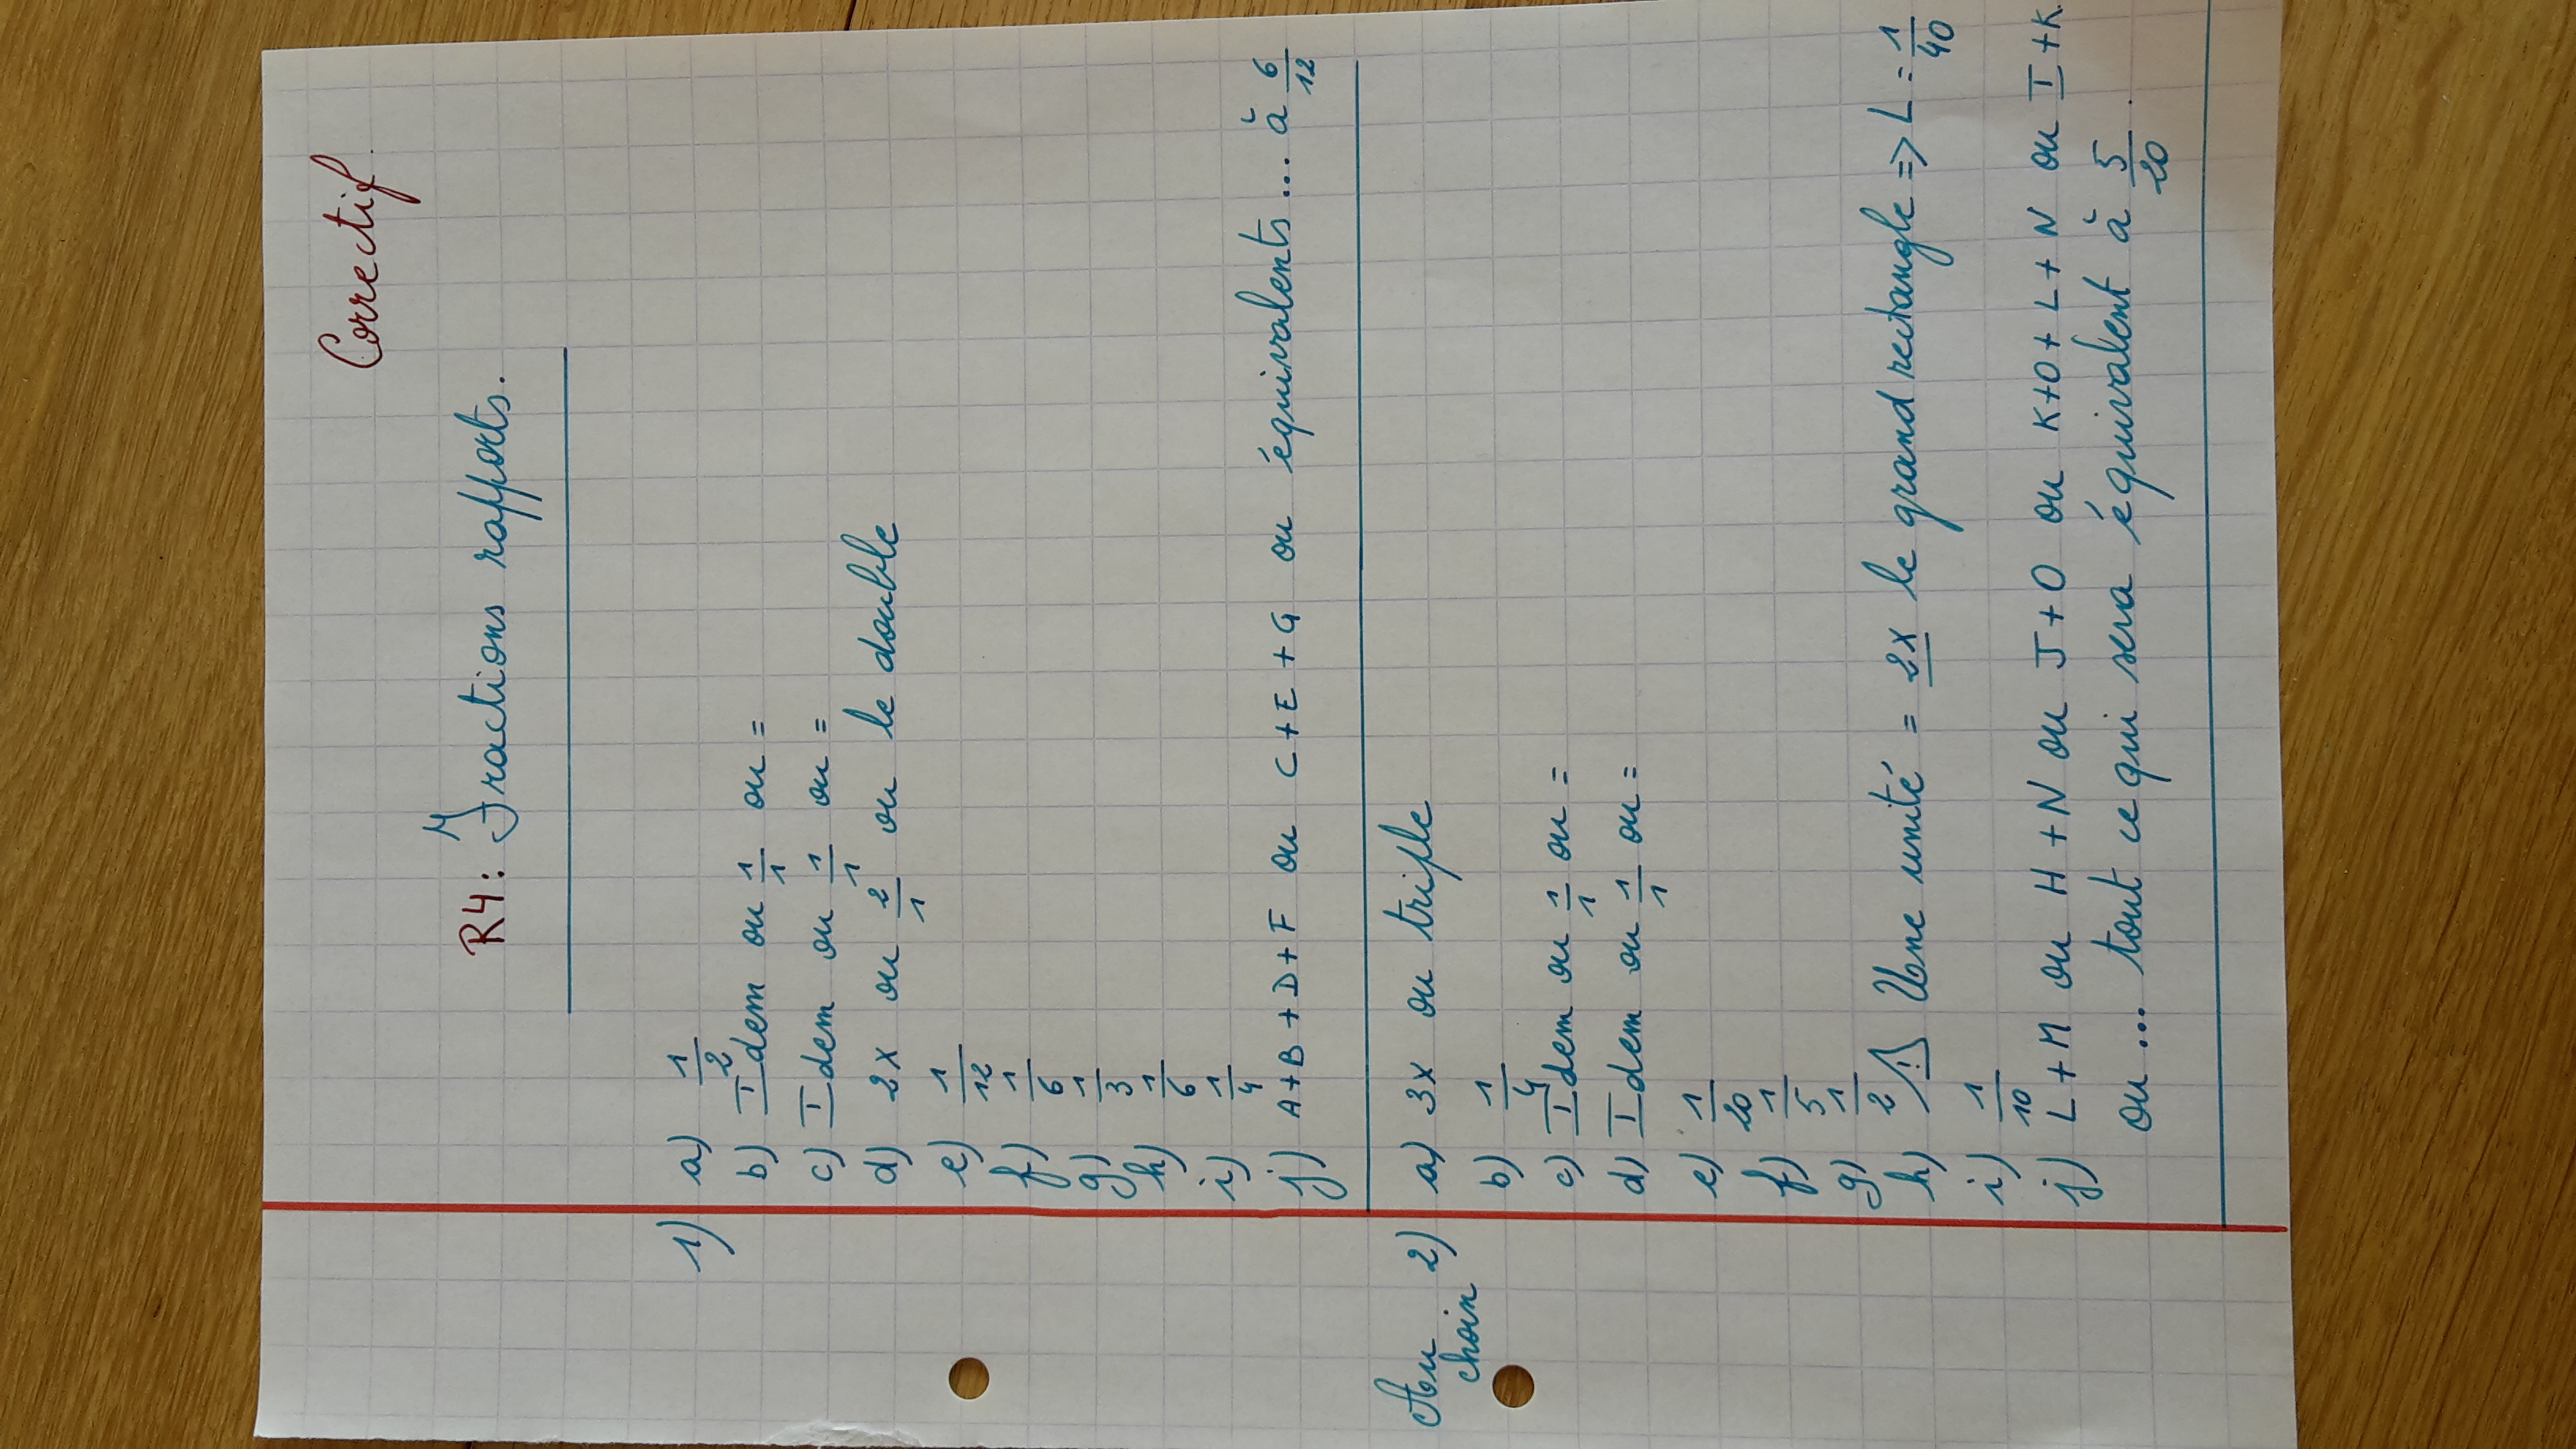 Correctif.
R4: Fractions rapports.
1) a) 1/2
b) Idem ou 1/1 ou =
c) Idem ou 1/1 ou =
d) 2x ou 2/1 ou le double
e) 1/12
f) 1/6
g) 1/3
h) 1/6
i) 1/4
j) A+B+D+F ou C+E+G ou équivalents... à 6/12
Au choix 2) a) 3x ou triple
b) 1/4
c) Idem ou 1/1 ou =
d) Idem ou 1/1 ou =
e) 1/20
f) 1/5
g) 1/2
h) ⚠ Une unité = 2x le grand rectangle => L = 1/40
i) 1/10
j) L+M ou H+N ou J+O ou K+O+L+N ou I+K.
ou... tout ce qui sera équivalent à 5/20.